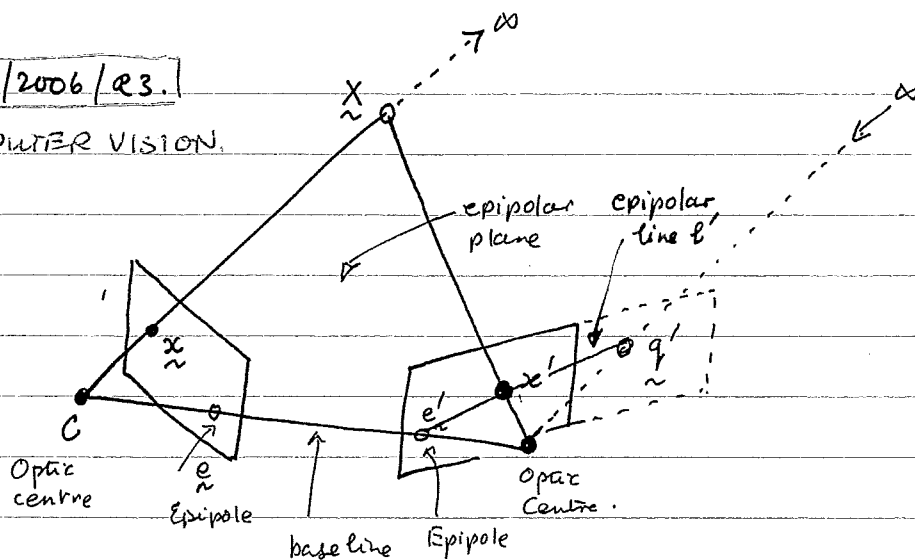 /2006/Q3.
PUTER VISION.
∞
X
∞
epipolar
plane
epipolar
line l'
x
x'
q'
e'
C
Optic
centre
e
Epipole
baseline
Epipole
Optic
Centre.